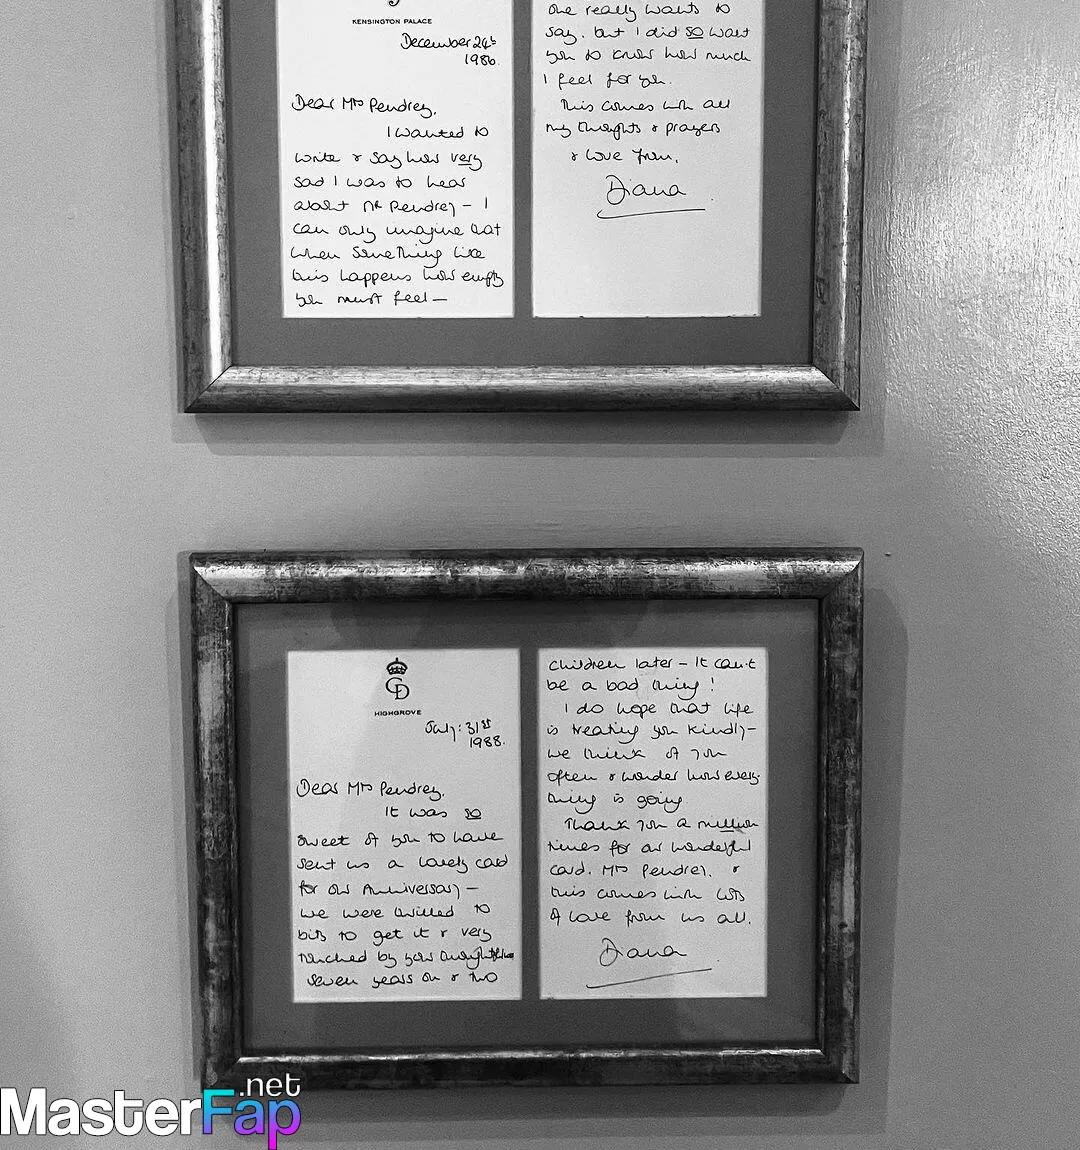 KENSINGTON PALACE
December 24th
1986.
Dear Mrs Pendrey,
I wanted to
write & say how very
sad I was to hear
about Mr Pendrey - I
can only imagine that
when something like
this happens how empty
you must feel —
one really wants to
say, but I did so want
you to know how much
I feel for you.
This comes with all
my thoughts & prayers
& love from,
Diana
CD
HIGHGROVE
July: 31st
1988.
Dear Mrs Pendrey,
It was so
sweet of you to have
sent us a lovely card
for our Anniversary -
we were thrilled to
bits to get it & very
touched by your
seven years on & two
children later - it can't
be a bad thing!
I do hope that life
is treating you kindly -
we think of you
often & wonder how every-
thing is going
Thank you a million
times for our wonderful
card, Mrs Pendrey, &
this comes with lots
of love from us all.
Diana
MasterFap.net